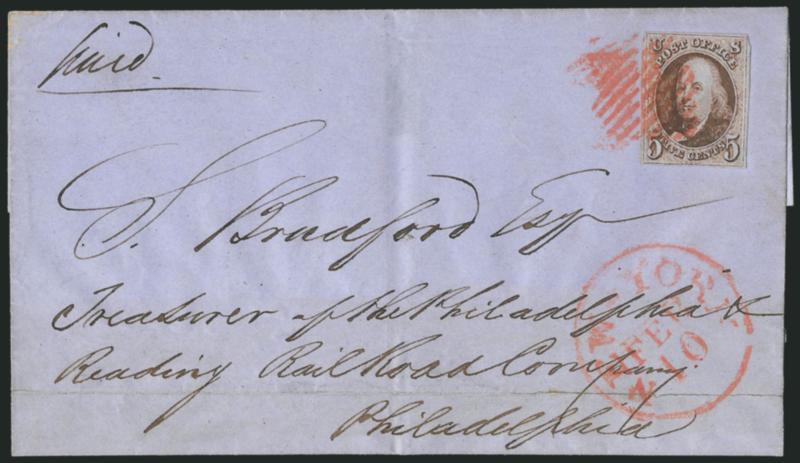 paid
U S
POST OFFICE
5 FIVE CENTS 5
S. Bradford Esqr
Treasurer of the Philadelphia &
Reading Rail Road Company
Philadelphia
NEW YORK
FEB
10